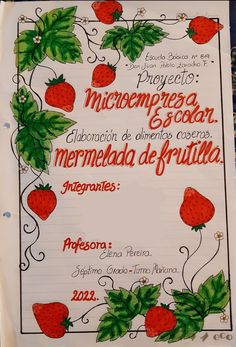 Escuela Básica n° 819
"Don Juan Pablo Gorostiao F."
Proyecto:
Microempresa
Escolar.
Elaboración de alimentos caseros.
Mermelada de frutilla.
Integrantes:
Profesora:
Elena Pereira.
Séptimo Grado - Turno Mañana.
2022